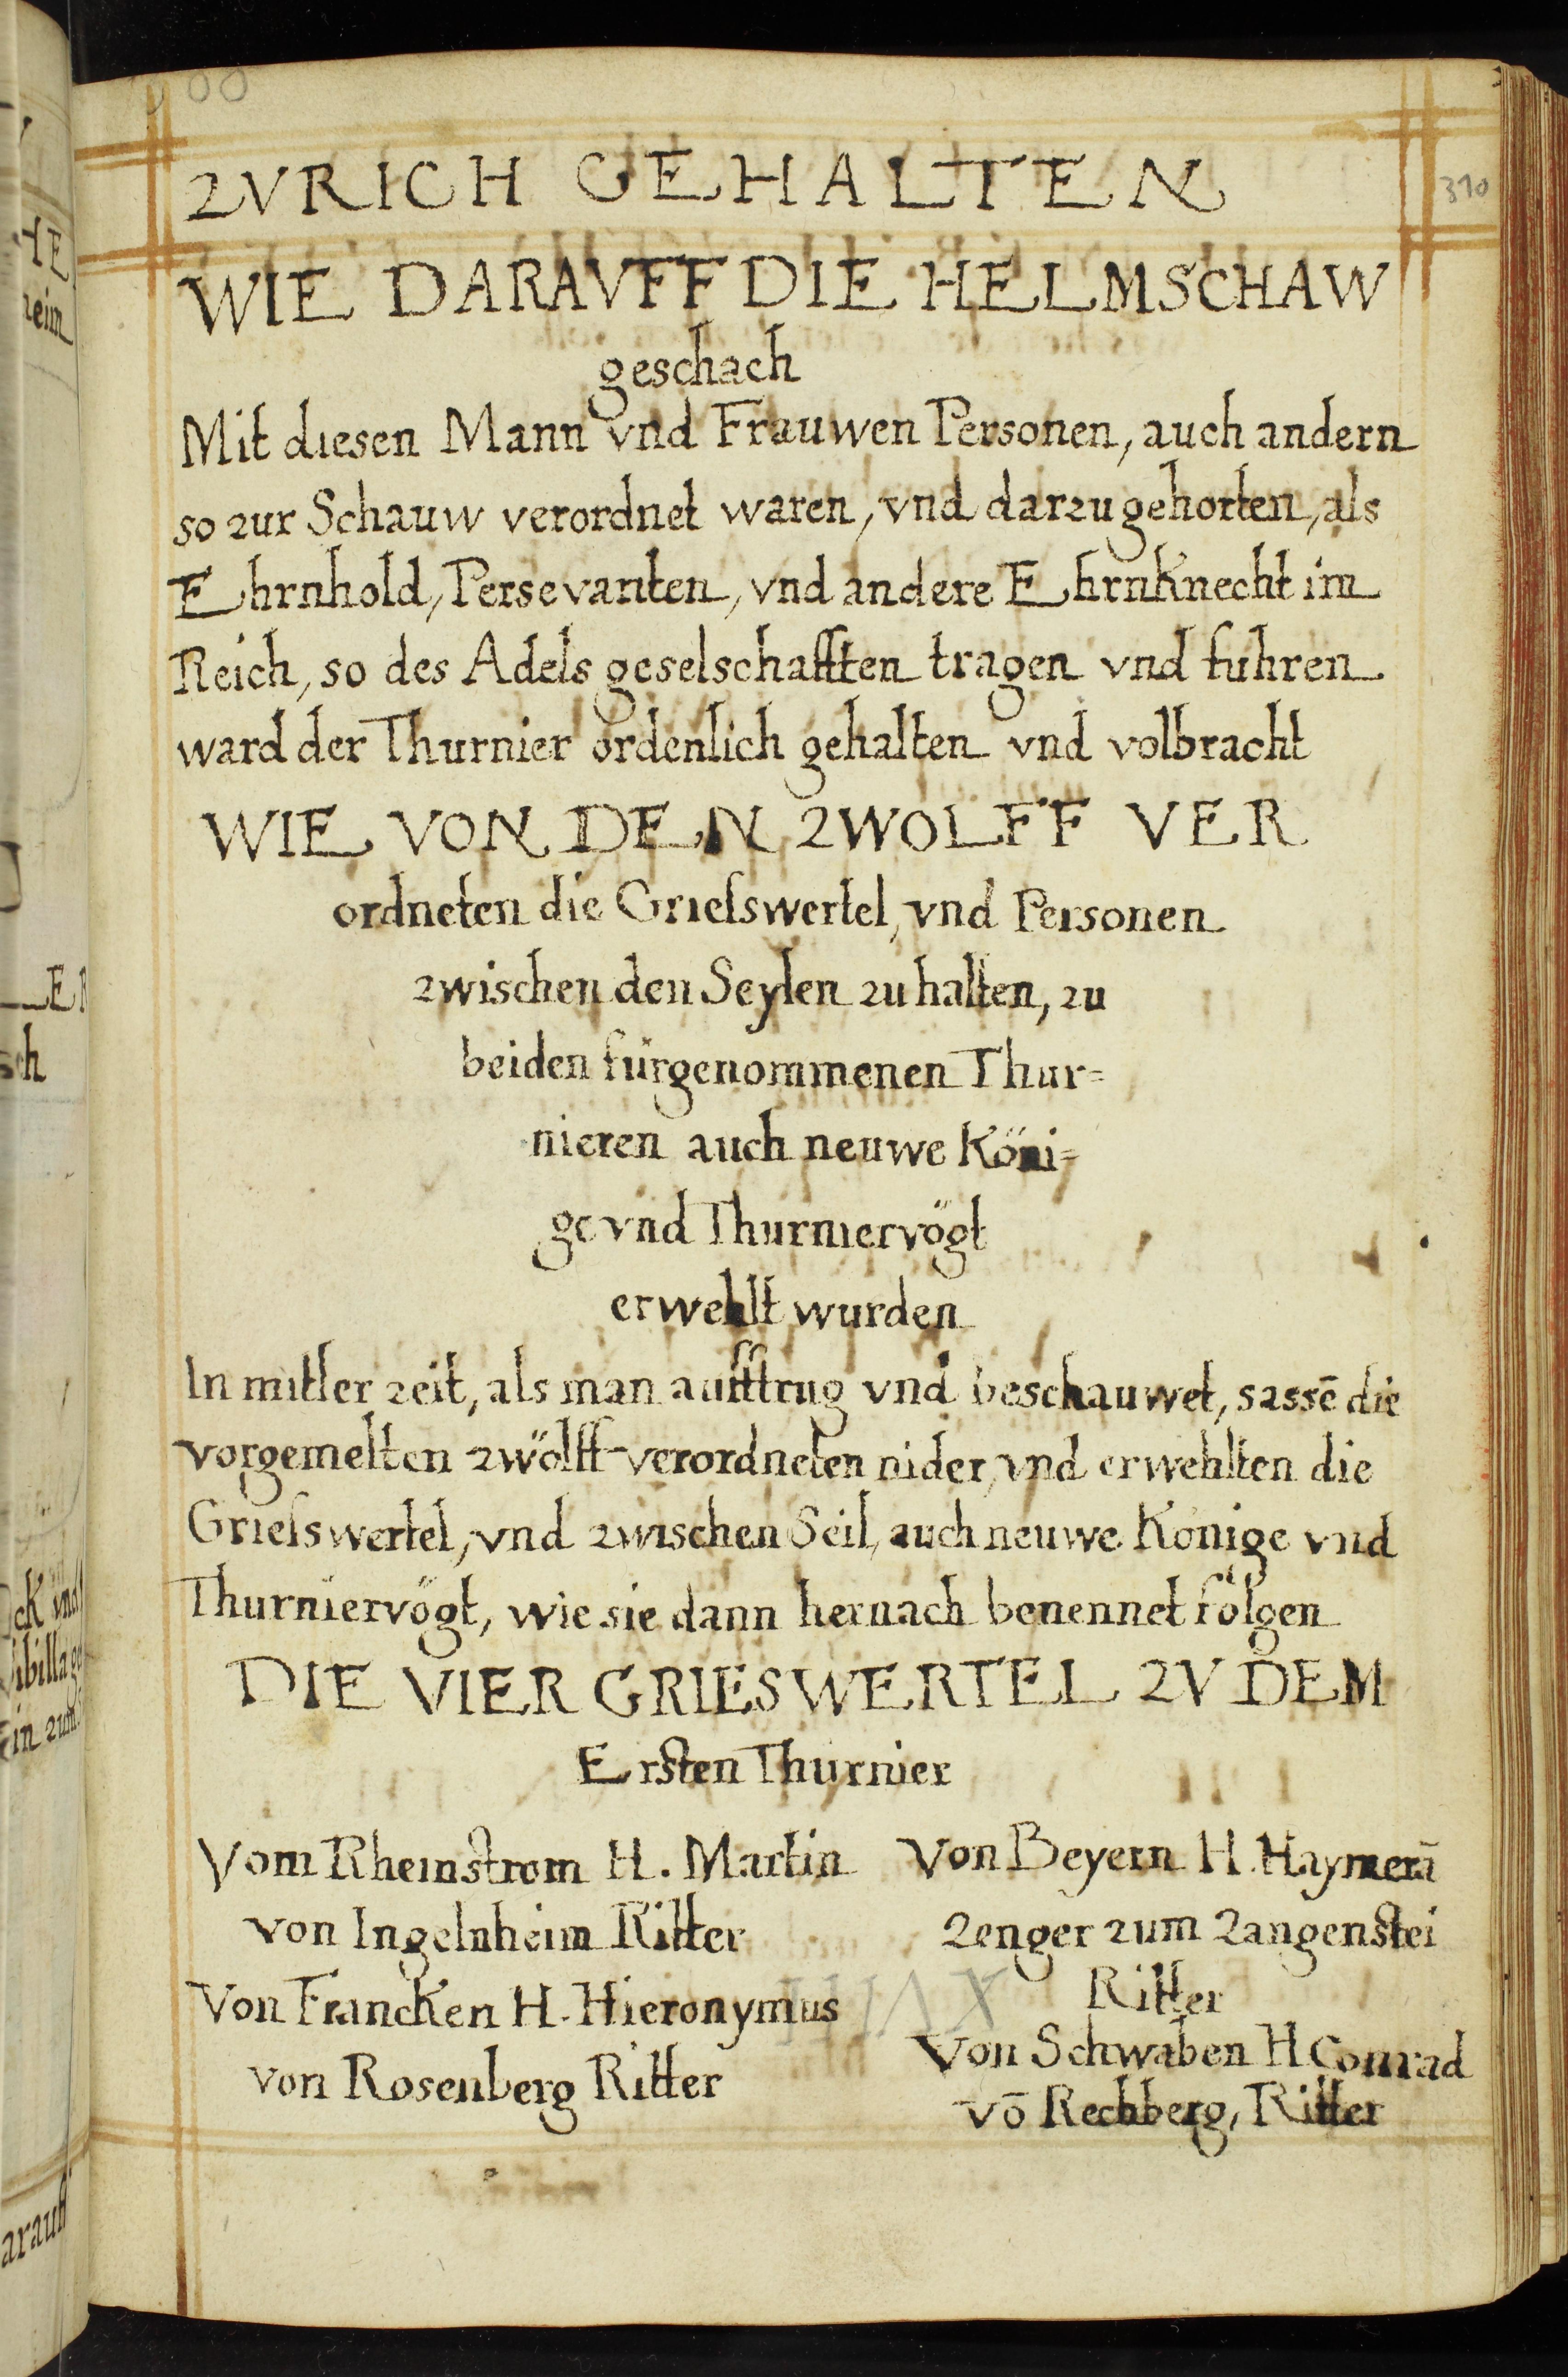 310
ZVRICH GEHALTEN
WIE DARAVFF DIE HELMSCHAW
geschach
Mit diesen Mann vnd Frauwen Personen, auch andern
so zur Schauw verordnet waren, vnd darzu gehorten, als
Ehrnhold, Persevanten, vnd andere Ehrnknecht im
Reich, so des Adels geselschafften tragen vnd fuhren
ward der Thurnier ordenlich gehalten vnd volbracht
WIE VON DEN ZWOLFF VER
ordneten die Grieſswertel, vnd Personen
zwischen den Seylen zu halten, zu
beiden fürgenommenen Thur=
nieren auch neuwe Köni=
ge vnd Thurniervögt
erwehlt wurden
In mitler zeit, als man aufftrug vnd beschauwet, sassē die
vorgemelten zwölff verordneten nider, vnd erwehlten die
Grieſswertel, vnd zwischen Seil, auch neuwe Könige vnd
Thurniervögt, wie sie dann hernach benennet folgen
DIE VIER GRIESWERTEL ZV DEM
Ersten Thurnier
Vom Rheinstrom H. Martin
von Ingelnheim Ritter
Von Francken H. Hieronymus
von Rosenberg Ritter
Von Beyern H. Haymerā
Zenger zum Zangenstei
Ritter
Von Schwaben H Conrad
vō Rechberg, Ritter